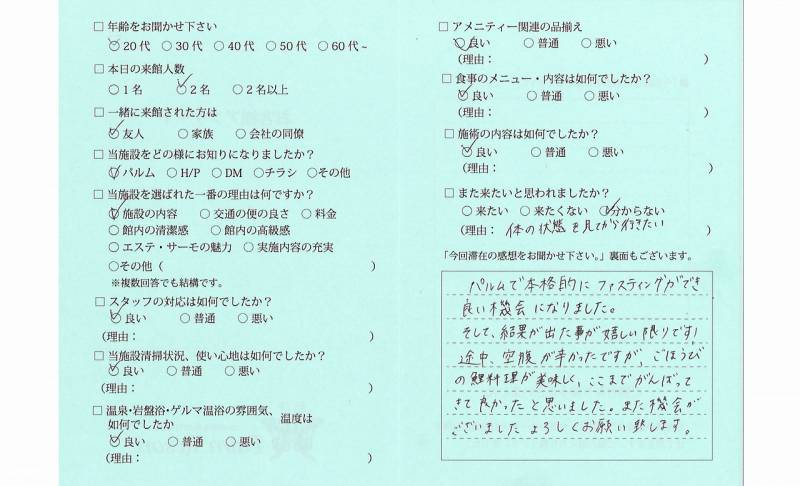 □ 年齢をお聞かせ下さい
○20代 ○30代 ○40代 ○50代 ○60代~
□ 本日の来館人数
○1名 ○2名 ○2名以上
□ 一緒に来館された方は
○友人 ○家族 ○会社の同僚
□ 当施設をどの様にお知りになりましたか?
○パルム ○H/P ○DM ○チラシ ○その他
□ 当施設を選ばれた一番の理由は何ですか?
○施設の内容 ○交通の便の良さ ○料金
○館内の清潔感 ○館内の高級感
○エステ・サーモの魅力 ○実施内容の充実
○その他( )
※複数回答でも結構です。
□ スタッフの対応は如何でしたか?
○良い ○普通 ○悪い
(理由: )
□ 当施設清掃状況、使い心地は如何でしたか?
○良い ○普通 ○悪い
(理由: )
□ 温泉・岩盤浴・ゲルマ温浴の雰囲気、温度は
如何でしたか
○良い ○普通 ○悪い
(理由: )
□ アメニティー関連の品揃え
○良い ○普通 ○悪い
(理由: )
□ 食事のメニュー・内容は如何でしたか?
○良い ○普通 ○悪い
(理由: )
□ 施術の内容は如何でしたか?
○良い ○普通 ○悪い
(理由: )
□ また来たいと思われましたか?
○来たい ○来たくない ○分からない
(理由: 体の状態を見てから行きたい )
「今回滞在の感想をお聞かせ下さい。」裏面もございます。
パルムで本格的にファスティングができ
良い機会になりました。
そして、結果が出た事が嬉しい限りです!
途中、空腹が辛かったですが、ごほうび
の鯉料理が美味しく、ここまでがんばって
きて良かったと思いました。また機会が
ございましたよろしくお願い致します。